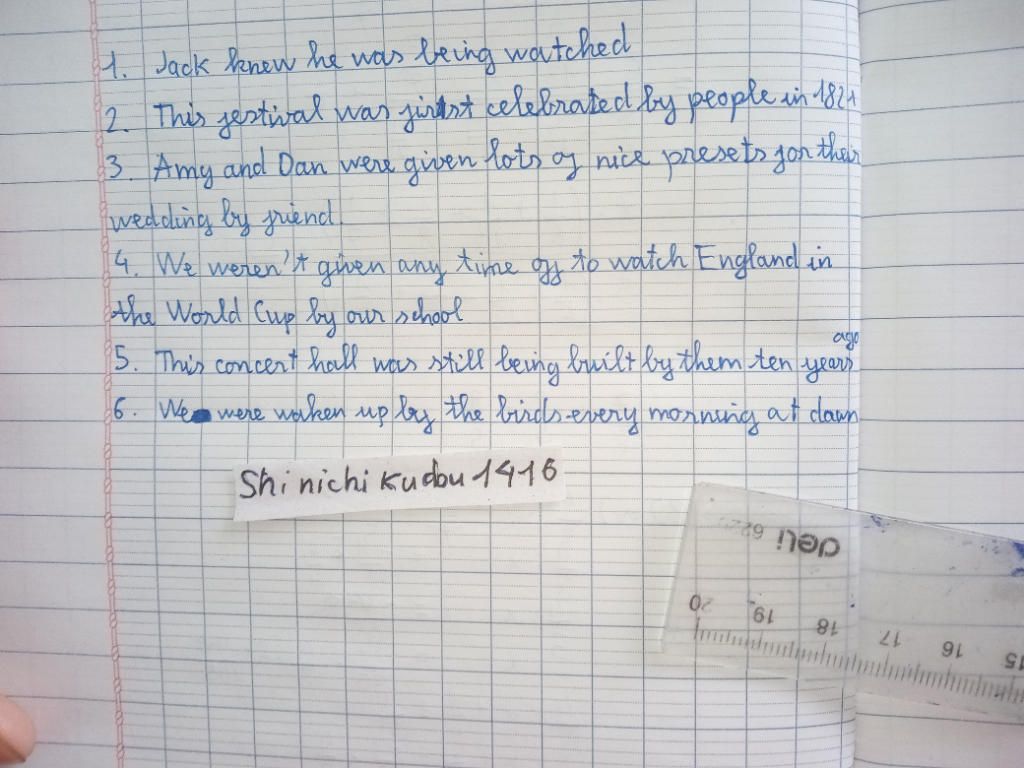 1. Jack knew he was being watched
2. This festival was first celebrated by people in 1821
3. Amy and Dan were given lots of nice presets for their
wedding by friend.
4. We weren't given any time off to watch England in
the World Cup by our school
ago
5. This concert hall was still being built by them ten years
6. We were waken up by the birds every morning at dawn
Shinichikudou1416
deli 622
20 19 18 17 16 15